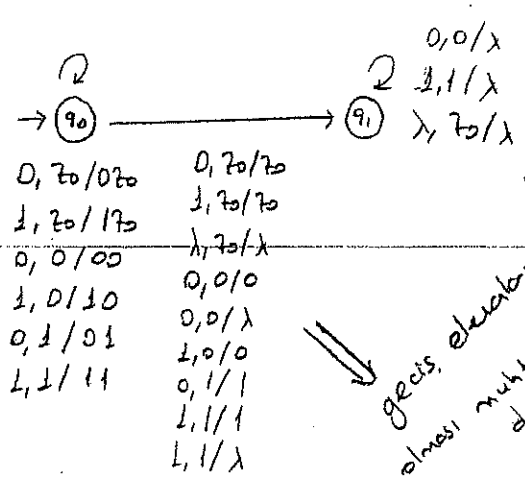 0,0/λ
1,1/λ
λ, z0/λ
→ q0
q1
0, z0/0z0
1, z0/1z0
0, 0/00
1, 0/10
0, 1/01
1, 1/11
0, z0/z0
1, z0/z0
λ, z0/λ
0, 0/0
0, 0/λ
1, 0/0
0, 1/1
1, 1/1
1, 1/λ
geçis,
olması